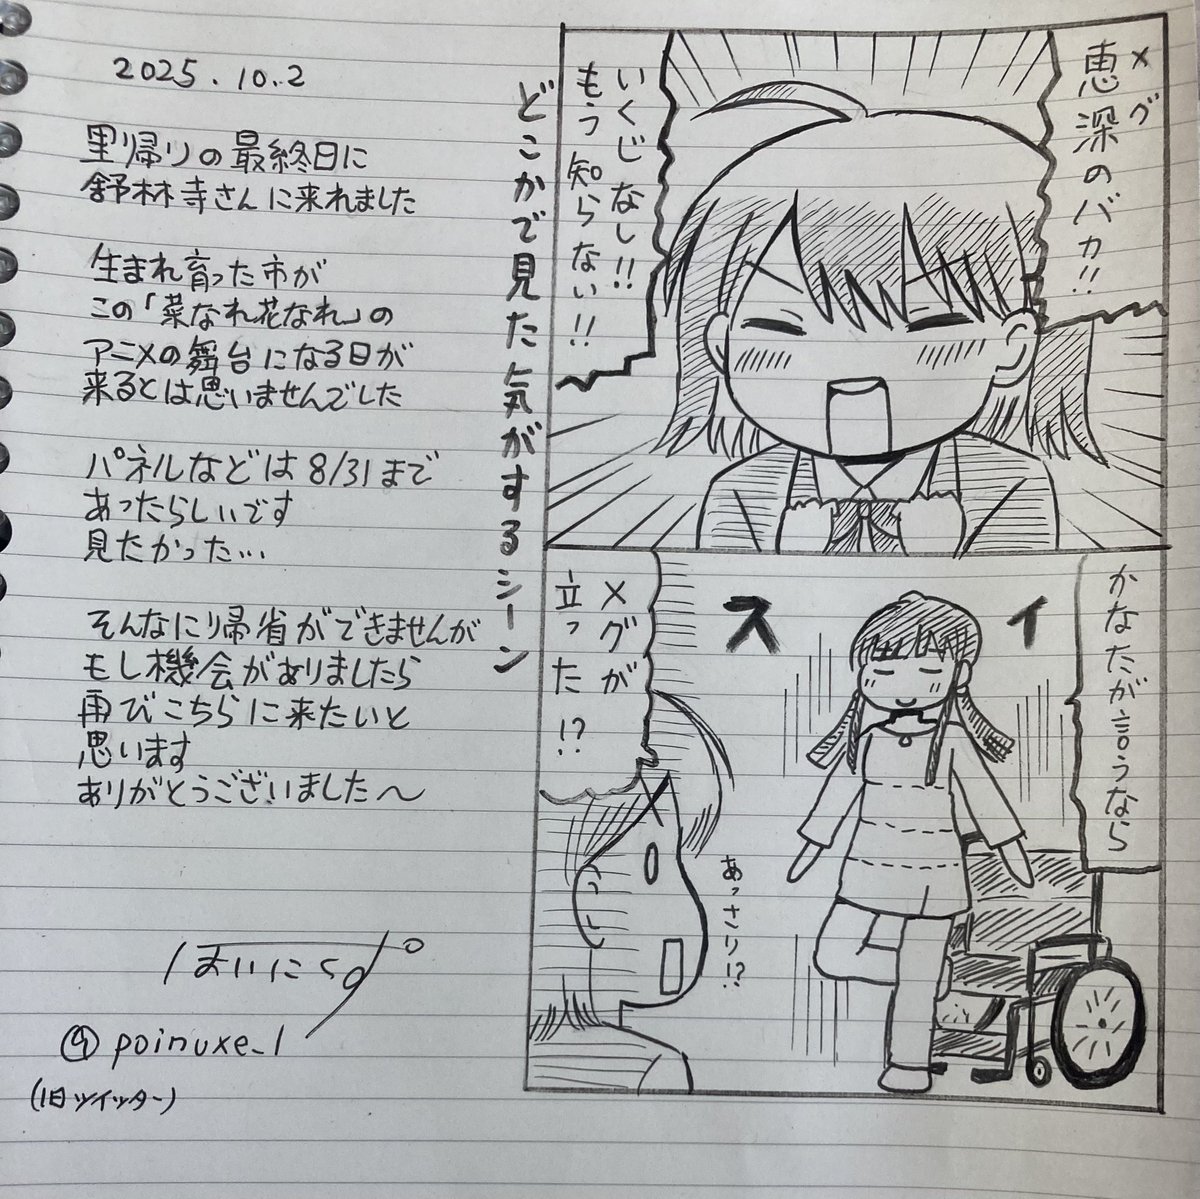 2025.10.2
里帰りの最終日に
舒林寺さんに来れました
生まれ育った市が
この「菜なれ花なれ」の
アニメの舞台になる日が
来るとは思いませんでした
パネルなどは8/31まで
あったらしいです
見たかった…
そんなに帰省ができませんが
もし機会がありましたら
再びこちらに来たいと
思います
ありがとうございました〜
@poinuxe_1
(旧ツイッター)
どこかで見た気がするシーン
メグ
恵深のバカ!!
いくじなし!!
もう知らない!!
かなたが言うなら
スイ
メグが
立った!?
あっさり!?